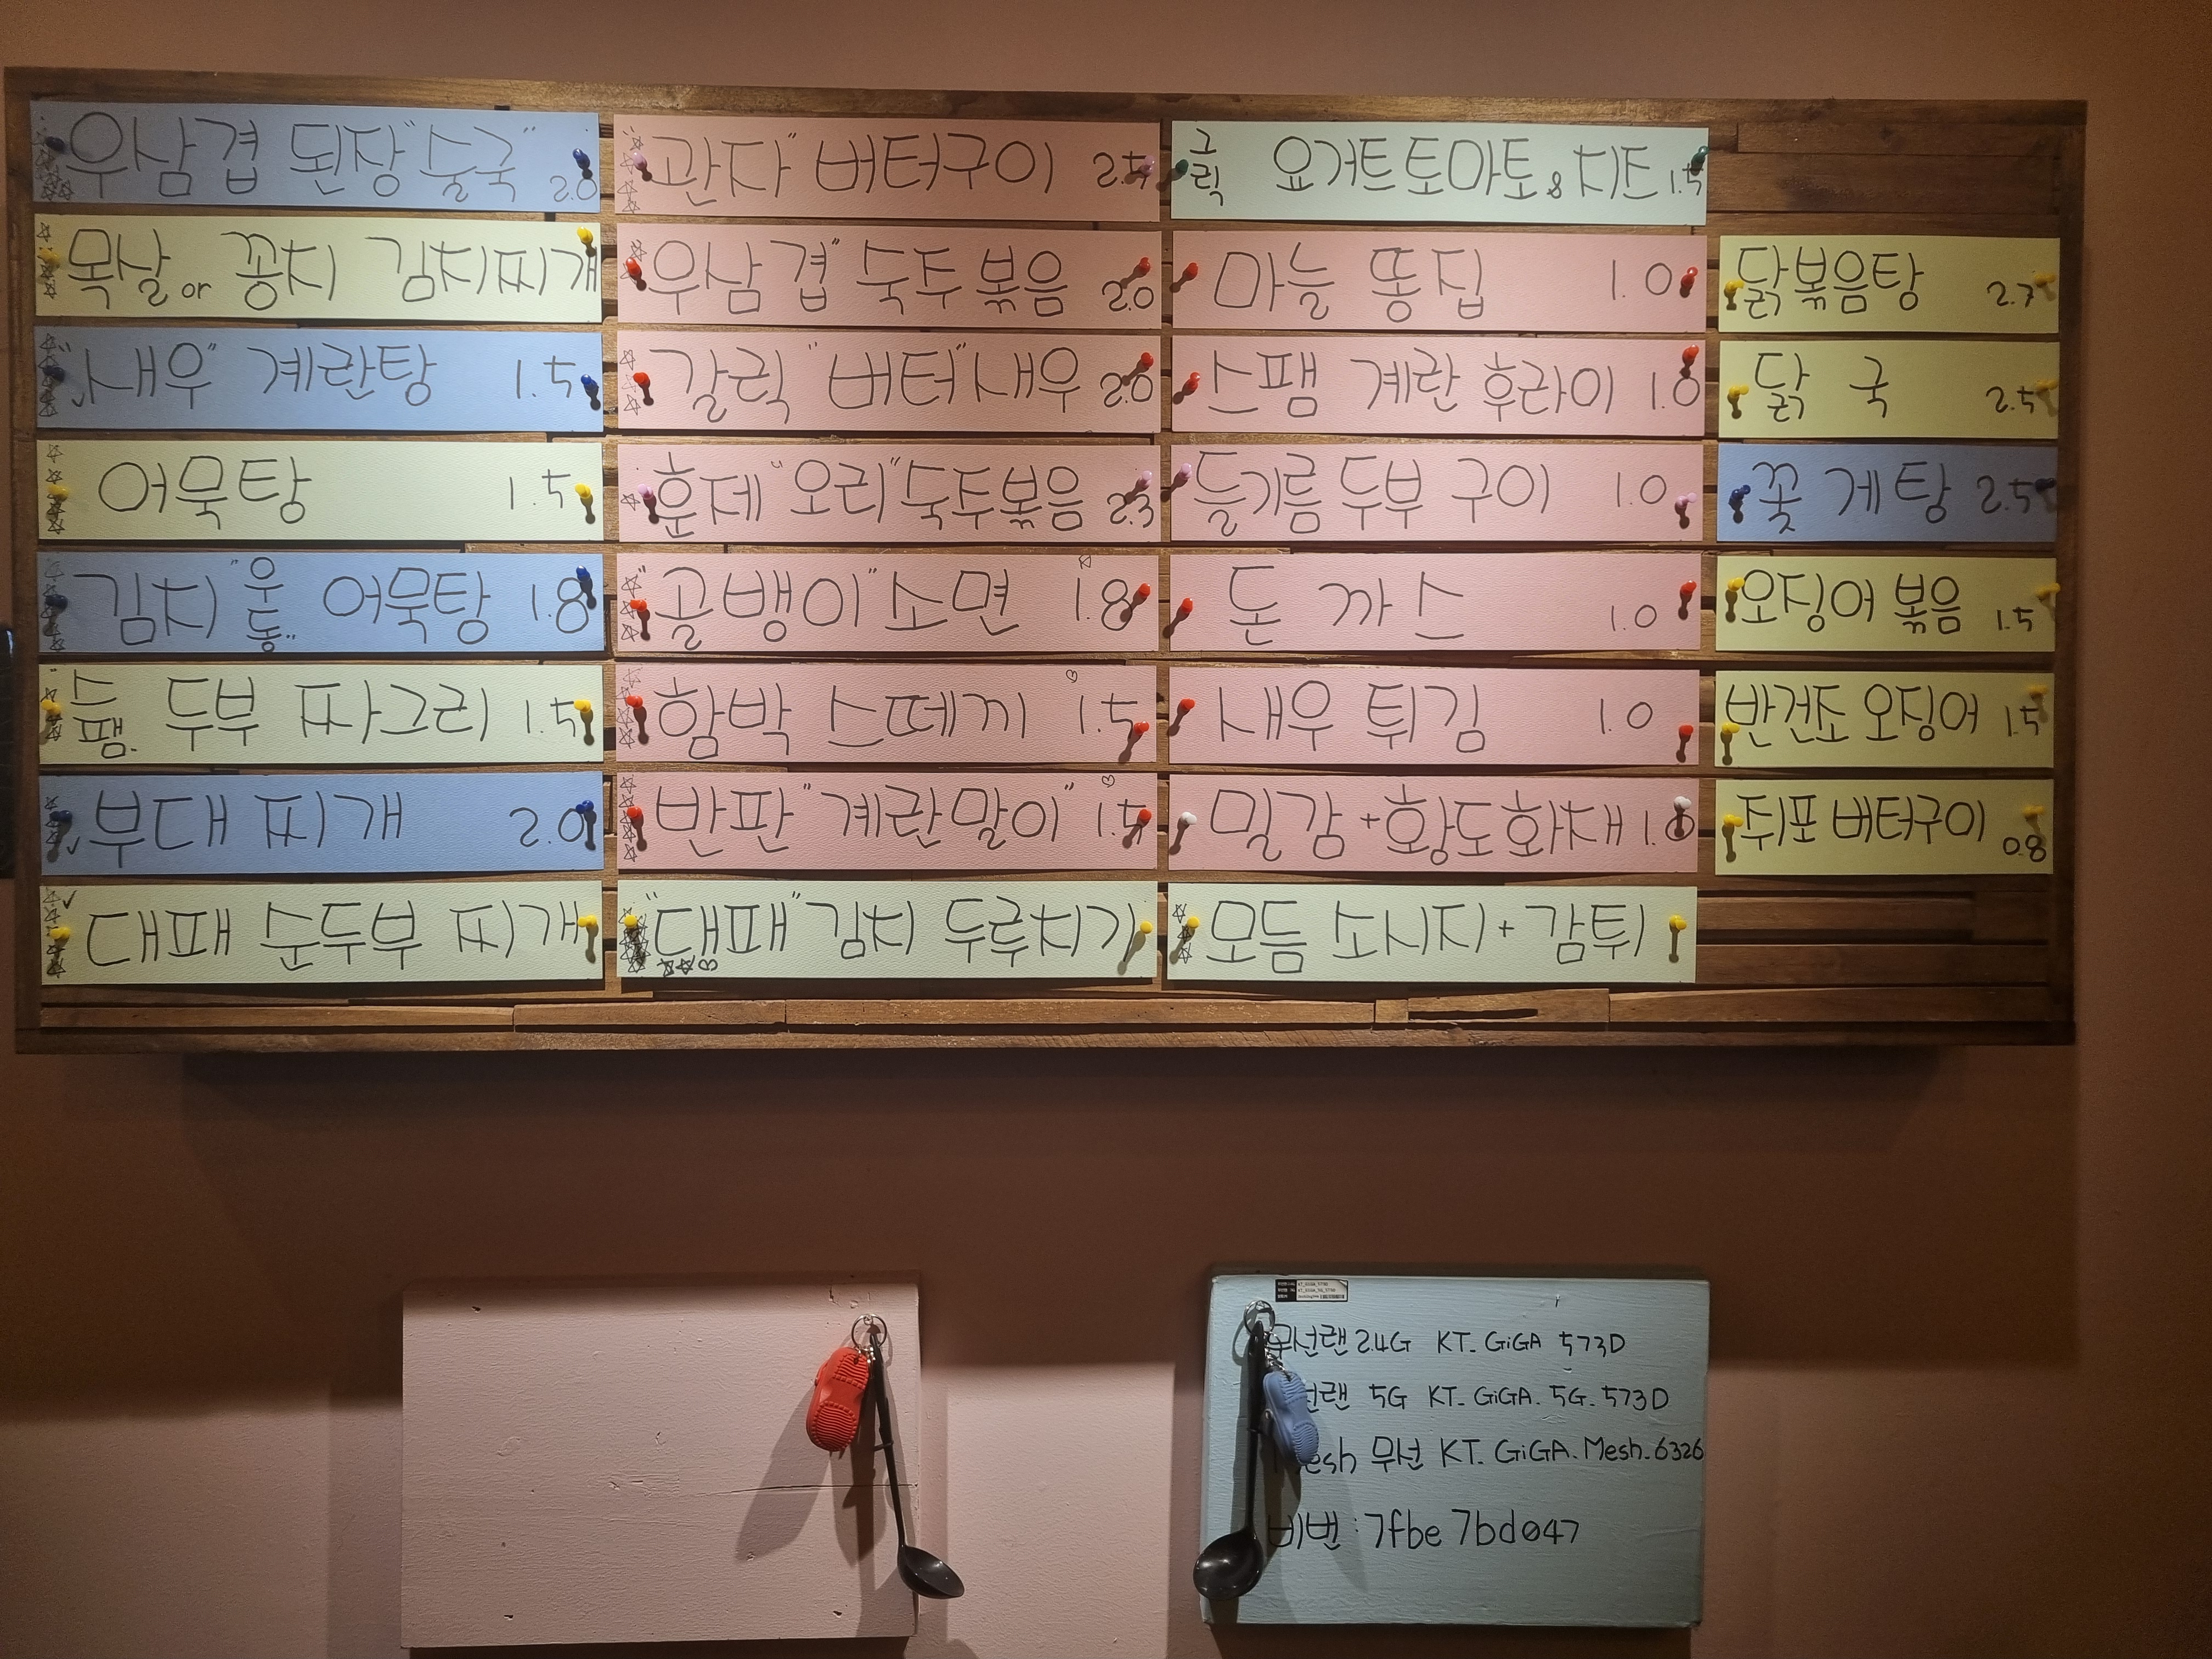 우삼겹 된장 "술국" 2.0
목살 or 꽁치 김치찌개
"새우" 계란탕 1.5
어묵탕 1.5
김치 "우동" 어묵탕 1.8
스팸 두부 짜그리 1.5
부대 찌개 2.0
대패 순두부 찌개
"관자" 버터구이 2.5
"우삼겹" 숙주볶음 2.0
갈릭 "버터" 새우 2.0
훈제 "오리" 숙주볶음 2.3
"골뱅이" 소면 1.8
함박 스떼끼 1.5
반판 "계란말이" 1.5
"대패" 김치 두루치기
그릭 요거트토마토&치즈 1.5
마늘 똥집 1.0
스팸 계란 후라이 1.0
들기름 두부 구이 1.0
돈 까스 1.0
새우 튀김 1.0
밀감+황도화채 1.0
모듬 소시지+감튀
닭볶음탕 2.7
닭 국 2.5
꽃 게 탕 2.5
오징어 볶음 1.5
반건조 오징어 1.5
쥐포 버터구이 0.8
무선랜 2.4G KT_GiGA 573D
무선랜 5G KT_GiGA_5G_573D
Mesh 무선 KT_GiGA_Mesh_6326
비번 : 7fbe 7bd047